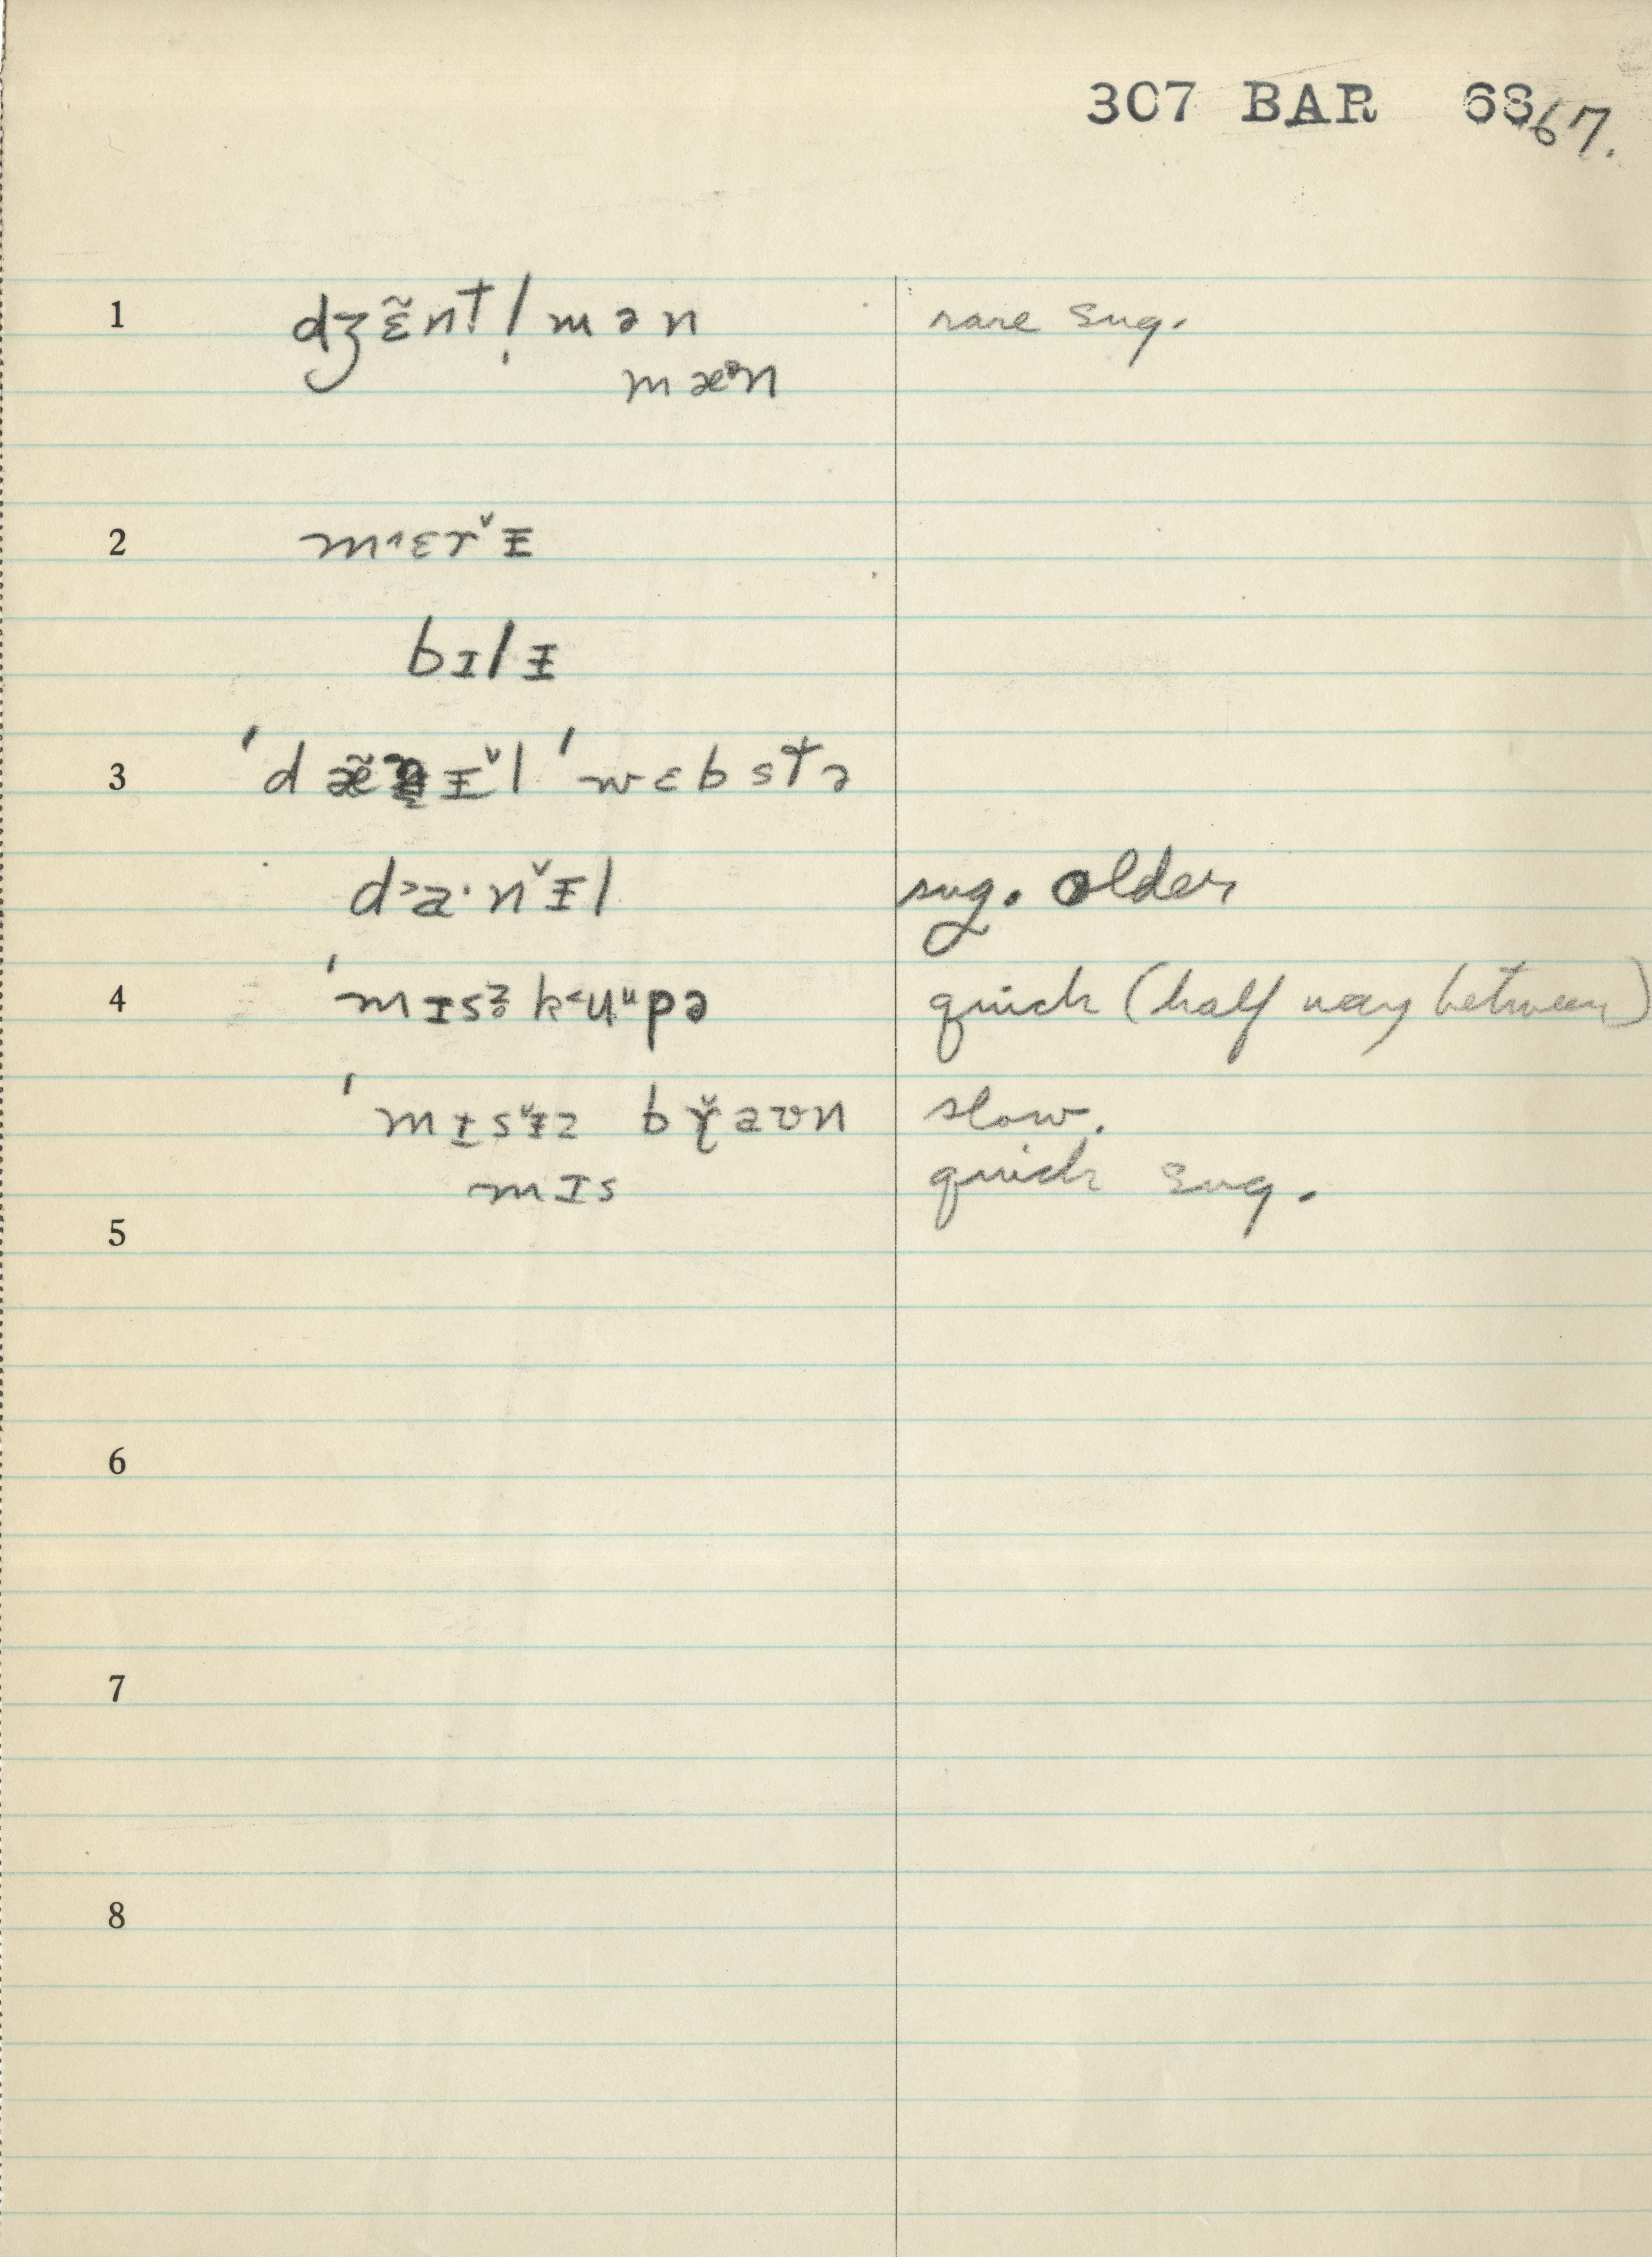 307 BAR 68 67.
1 dʒɛ̃nt!mən rare sug.
mæᵊn
2 m˄ɛrˇᵻ
bɪlᵻ
3 ˈdæ̃ ᵻˇl ˈwɛbstə
d˃a·nˇᵻl sug. older
4 ˈmɪsᶻ̥ k˂ʉᵘpə quick (half way between)
ˈmᵻsˇᵻz bɤ̌aʊn slow.
mɪs quick sug.
5
6
7
8